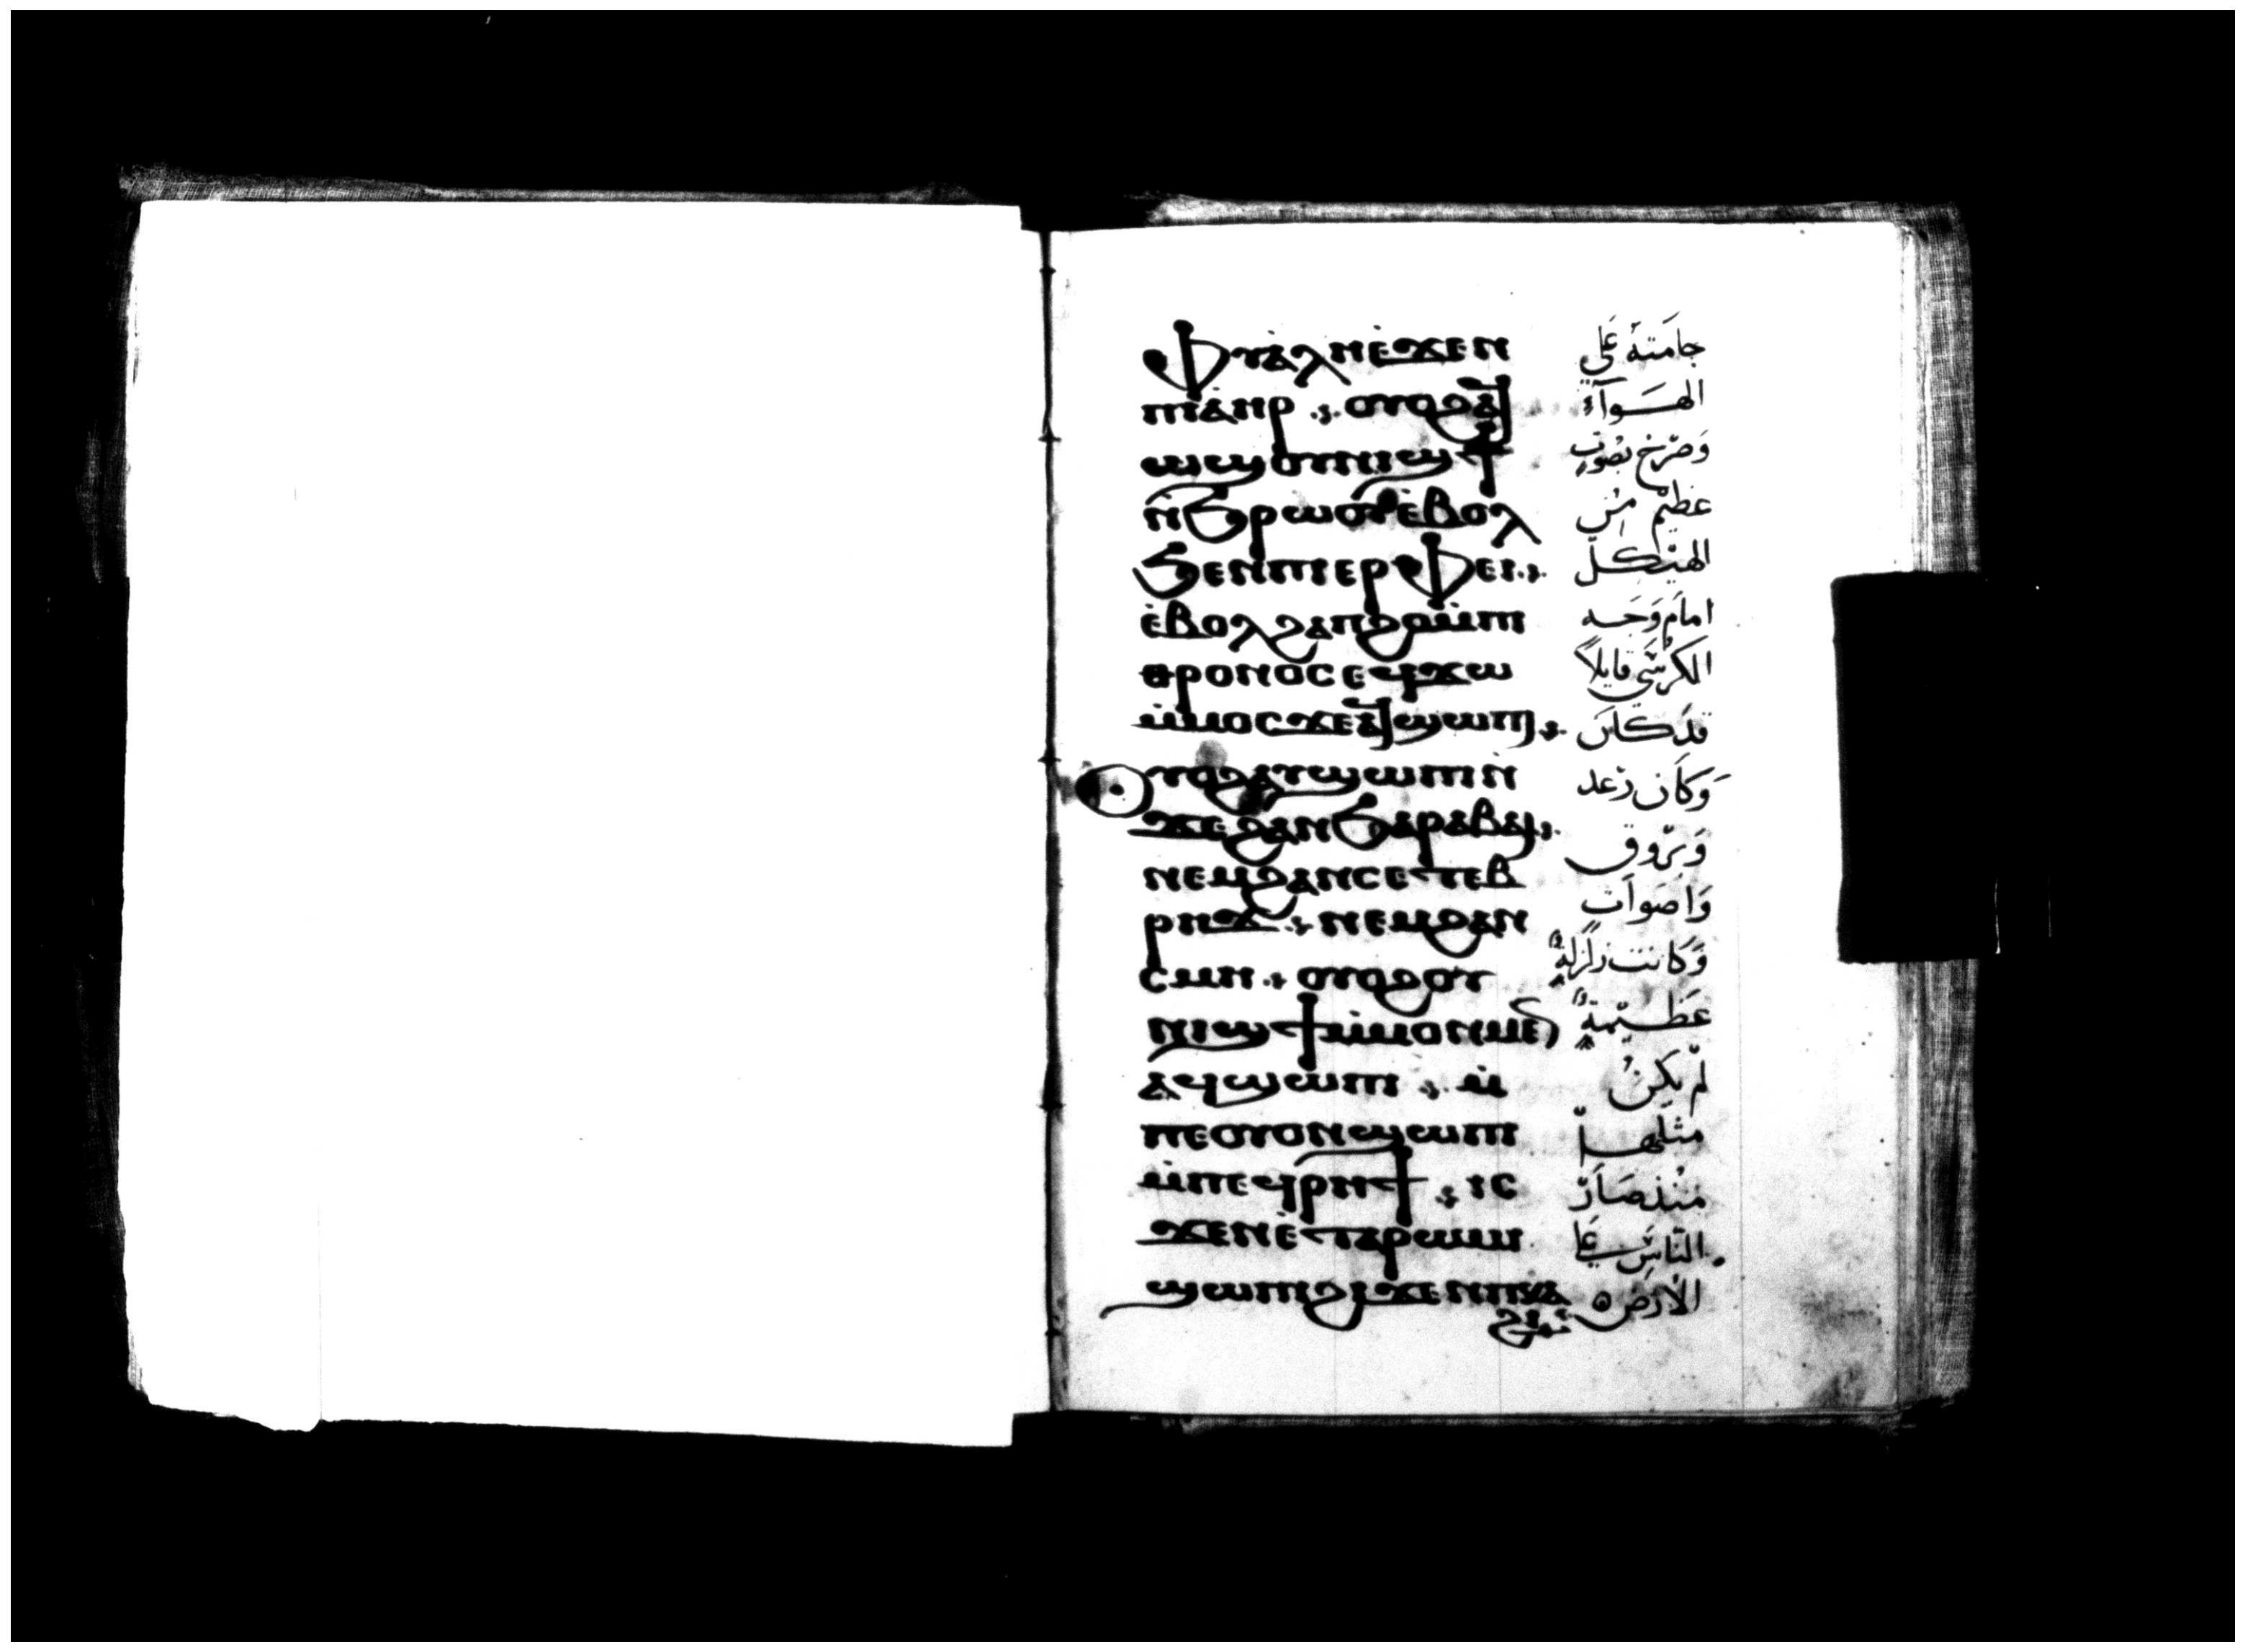 Ⲫⲩⲁⲗⲏⲉ̀ϫⲉⲛ
ⲡⲓⲁ̀ⲏⲣ ⲟⲩⲟϩⲁϥ
ⲱϣⲟⲩⲛⲓϣϯ
ⲛ̀ϧⲣⲱⲟⲩⲉ̀ⲃⲟⲗ
ϧⲉⲛⲡⲓⲉⲣⲫⲉⲓ
ⲉ̀ⲃⲟⲗϩⲁⲡϩⲟⲙ̀ⲡⲓ
ⲑⲣⲟⲛⲟⲥⲉϥϫⲱ
ⲙ̀ⲙⲟⲥϫⲉⲁϥϣⲱⲡⲓ
ⲟⲩⲟϩⲁⲩϣⲱⲡⲓⲛ̀
ϫⲉϩⲁⲛϧⲁⲣⲁⲃⲁⲓ
ⲛⲉⲙϩⲁⲛⲥⲉⲧⲉⲃ
ⲣⲏϫ ⲛⲉⲙϩⲁⲛ
ⲥⲙⲏ ⲟⲩⲟϩⲟⲩ
ⲛⲓϣϯⲙ̀ⲙⲟⲛⲙⲉⲛ
ⲁϥϣⲱⲡⲓ ⲙ̀
ⲡⲉⲟⲩⲟⲛϣⲱⲡⲓ
ⲙ̀ⲡⲉϥⲣⲏϯ ⲓⲥ
ϫⲉⲛⲉ̀ⲧⲁⲣⲱⲙⲓ
ϣⲱⲡⲓϩⲓϫⲉⲛⲡⲕⲁ
ϩⲓ
جامَتهُ عَلى
الهَوآءِ
وَصَرْخ بصَوتٍ
عَظيْم مِن
الهَيْكل
امامْ وَجَه
الكرْسّى قايلاً
قدَكانَ
وَكاَن رَعد
وَبَرُوق
وَاصَواَت
وَكانت زلزَلةٌ
عَظيْمةٌ
لمْ يَكنْ
مثلَها
منْذصَارَ
النّاسِ عَلى
الاْرضِ